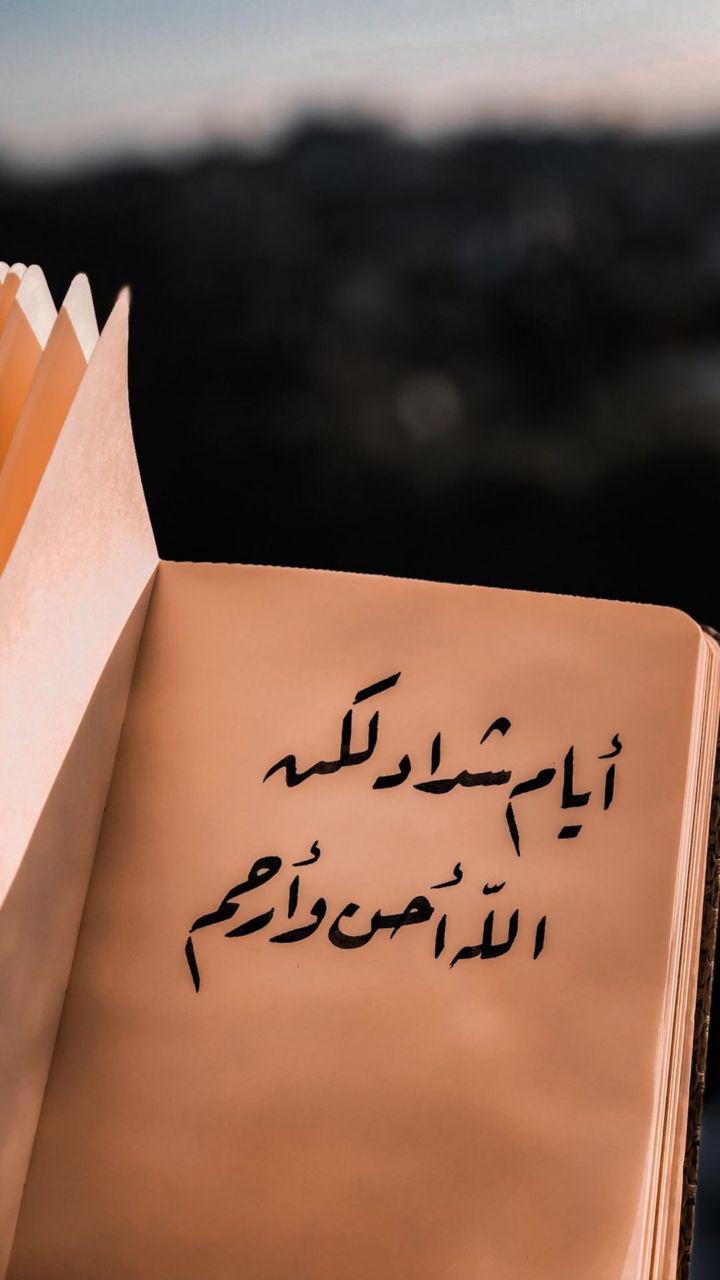 أيام شداد لكن
الله أحن وأرحم